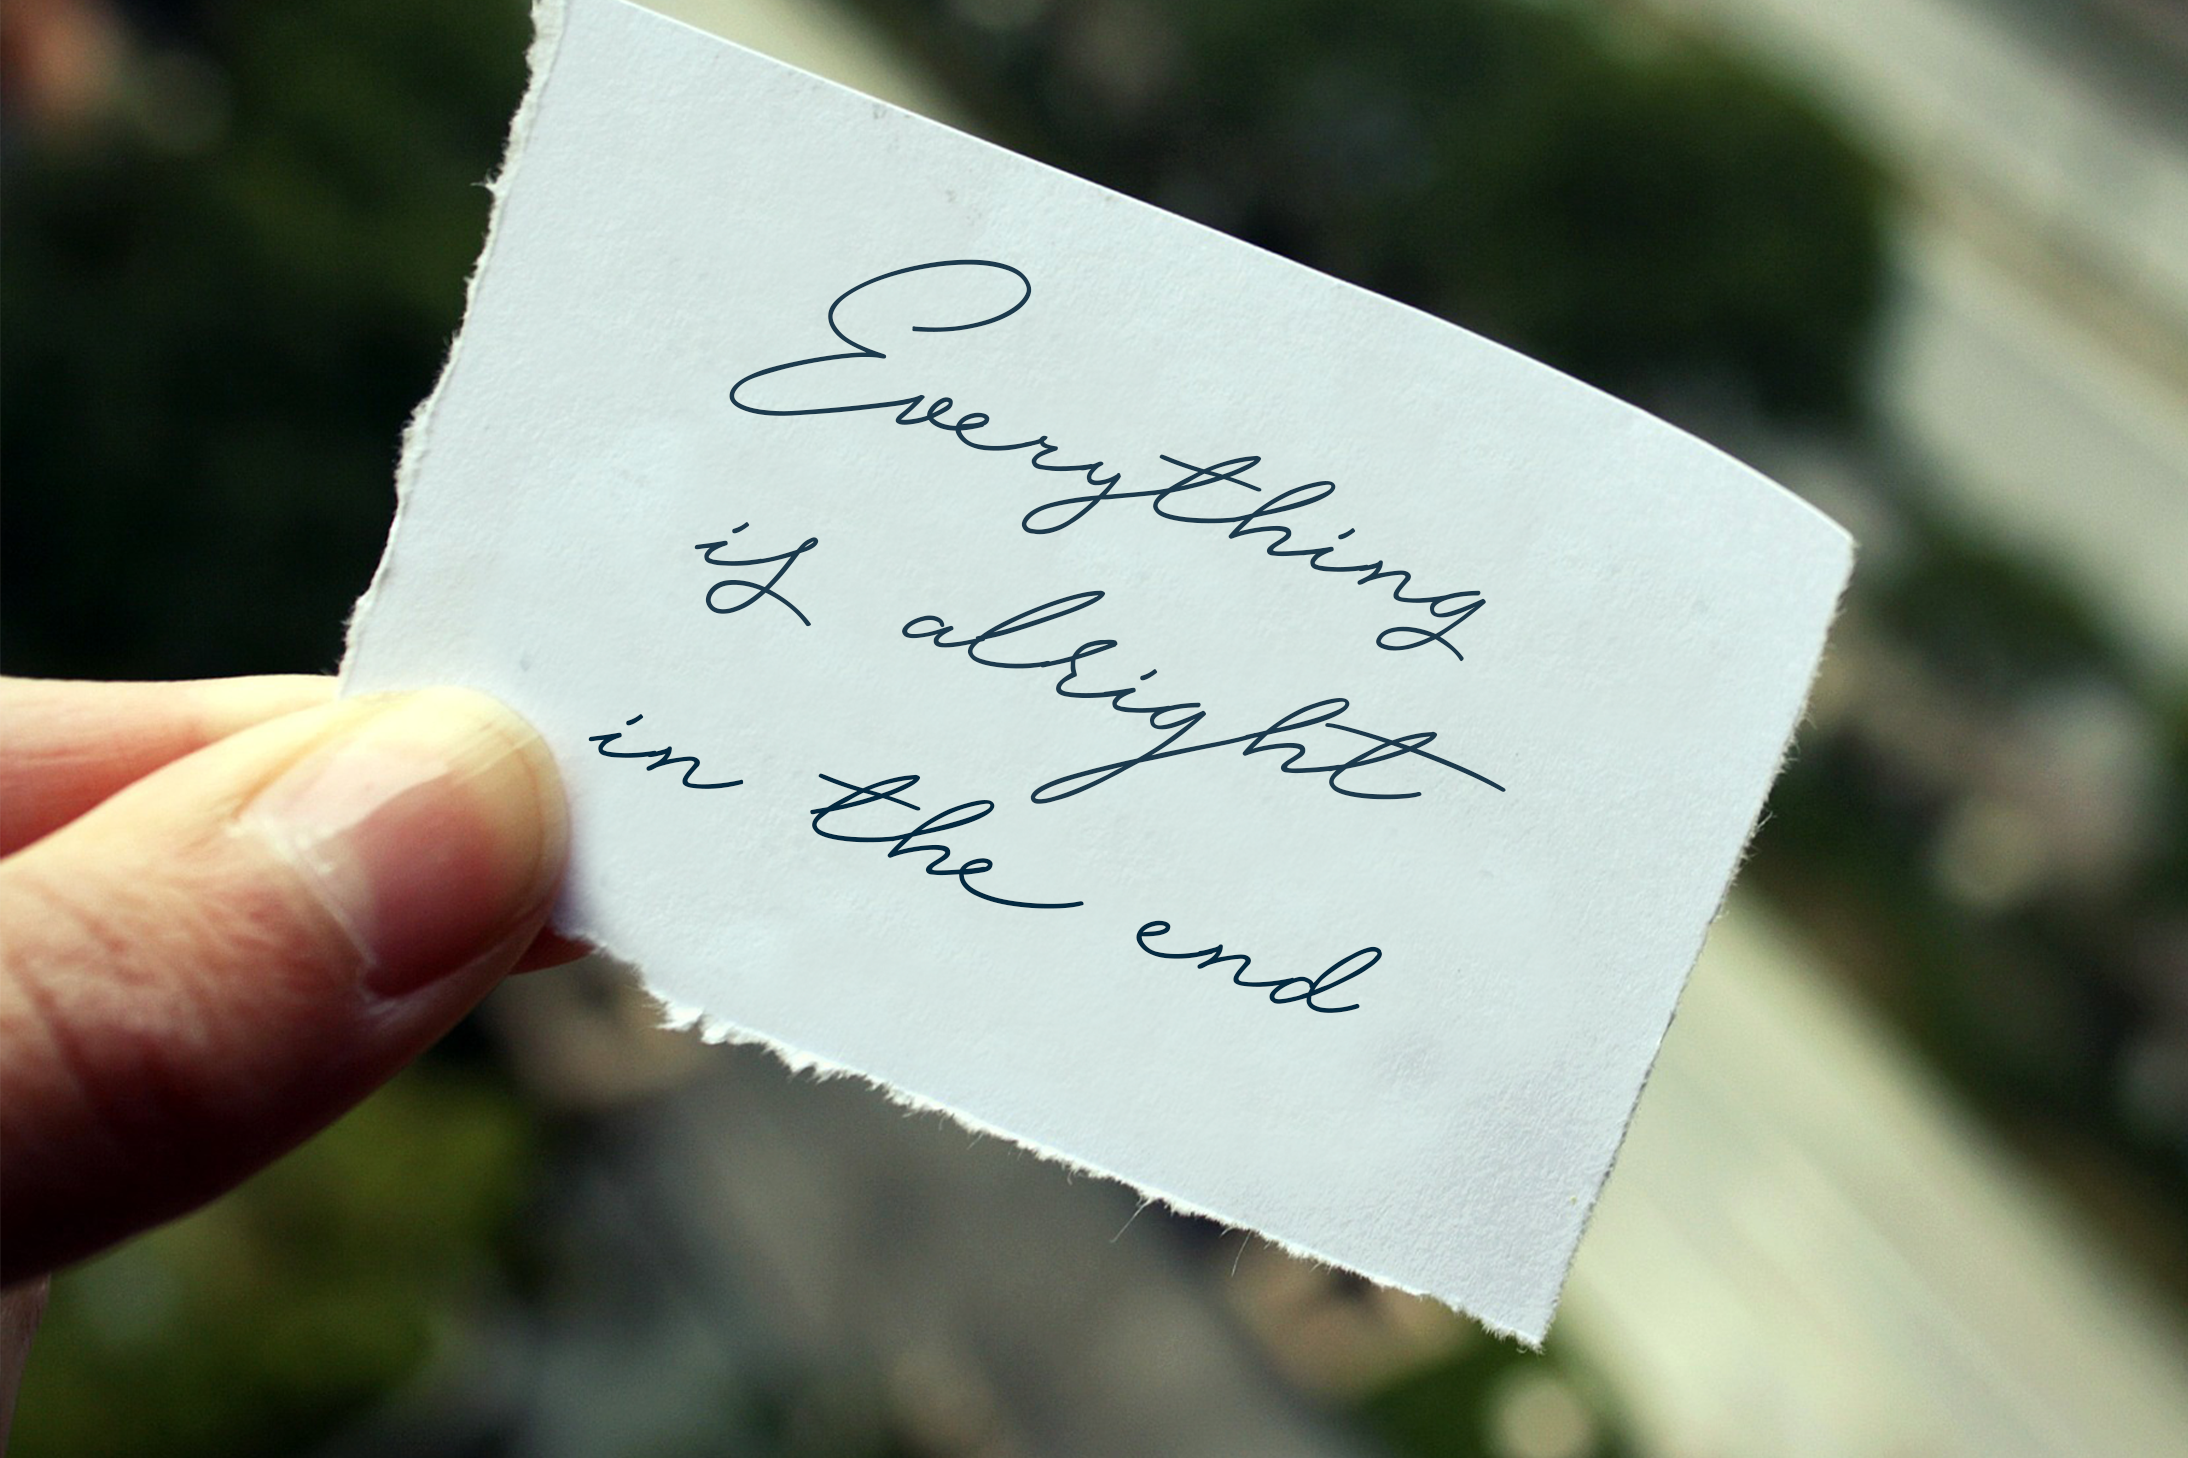 Everything
is alright
in the end